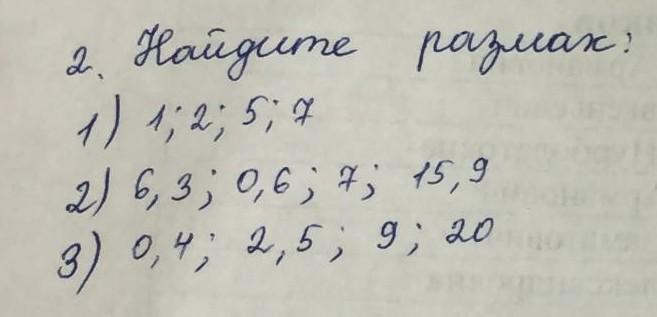 2. Найдите размах:
1) 1; 2; 5; 7
2) 6,3; 0,6; 7; 15,9
3) 0,4; 2,5; 9; 20